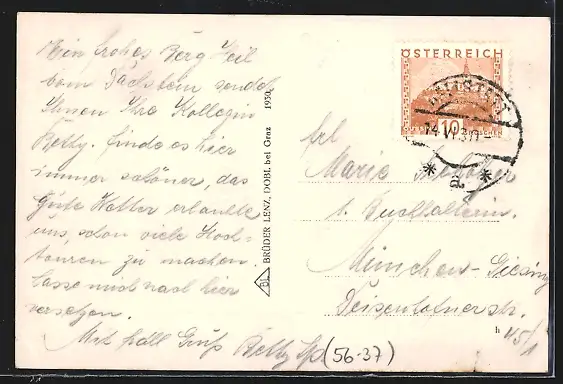 Ein frohes Berg Heil
vom Dachstein sendet
Ihnen Ihre Kollegin
Betty. Finde es hier
immer schöner, das
gute Wetter erlaubte
uns, schon viele Hoch-
touren zu machen.
Lasse mich nach hier
versetzen.
Mit Hall Gruß Betty
(56-37)
BL BRÜDER LENZ, DOBL bei Graz 1930.
ÖSTERREICH
10
GROSCHEN
HALLSTATT
14.VI.31
* a *
Frl
Marie
1. Buchhalterin.
München-Giesing
Deisenhofnerstr.
h 45/1